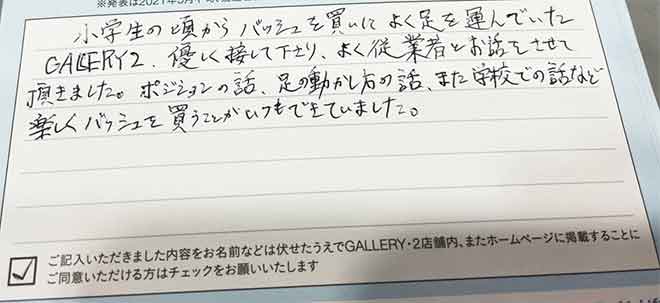 ※発表は2021年5月中
小学生の頃からバッシュを買いによく足を運んでいた
GALLERY2、優しく接して下さり、よく従業者とお話をさせて
頂きました。ポジションの話、足の動かし方の話、また学校での話など
楽しくバッシュを買うことがいつもできていました。
ご記入いただきました内容をお名前などは伏せたうえでGALLERY・2店舗内、またホームページに掲載することに
ご同意いただける方はチェックをお願いいたします